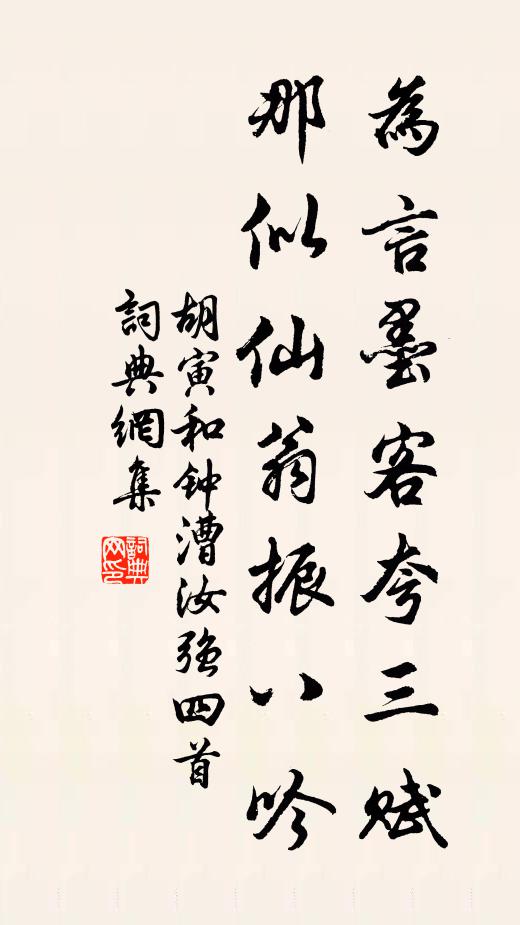 為言墨客夸三賦
那似仙翁振八吟
胡寅和钟漕汝强四首
詞典網集
詞典網印